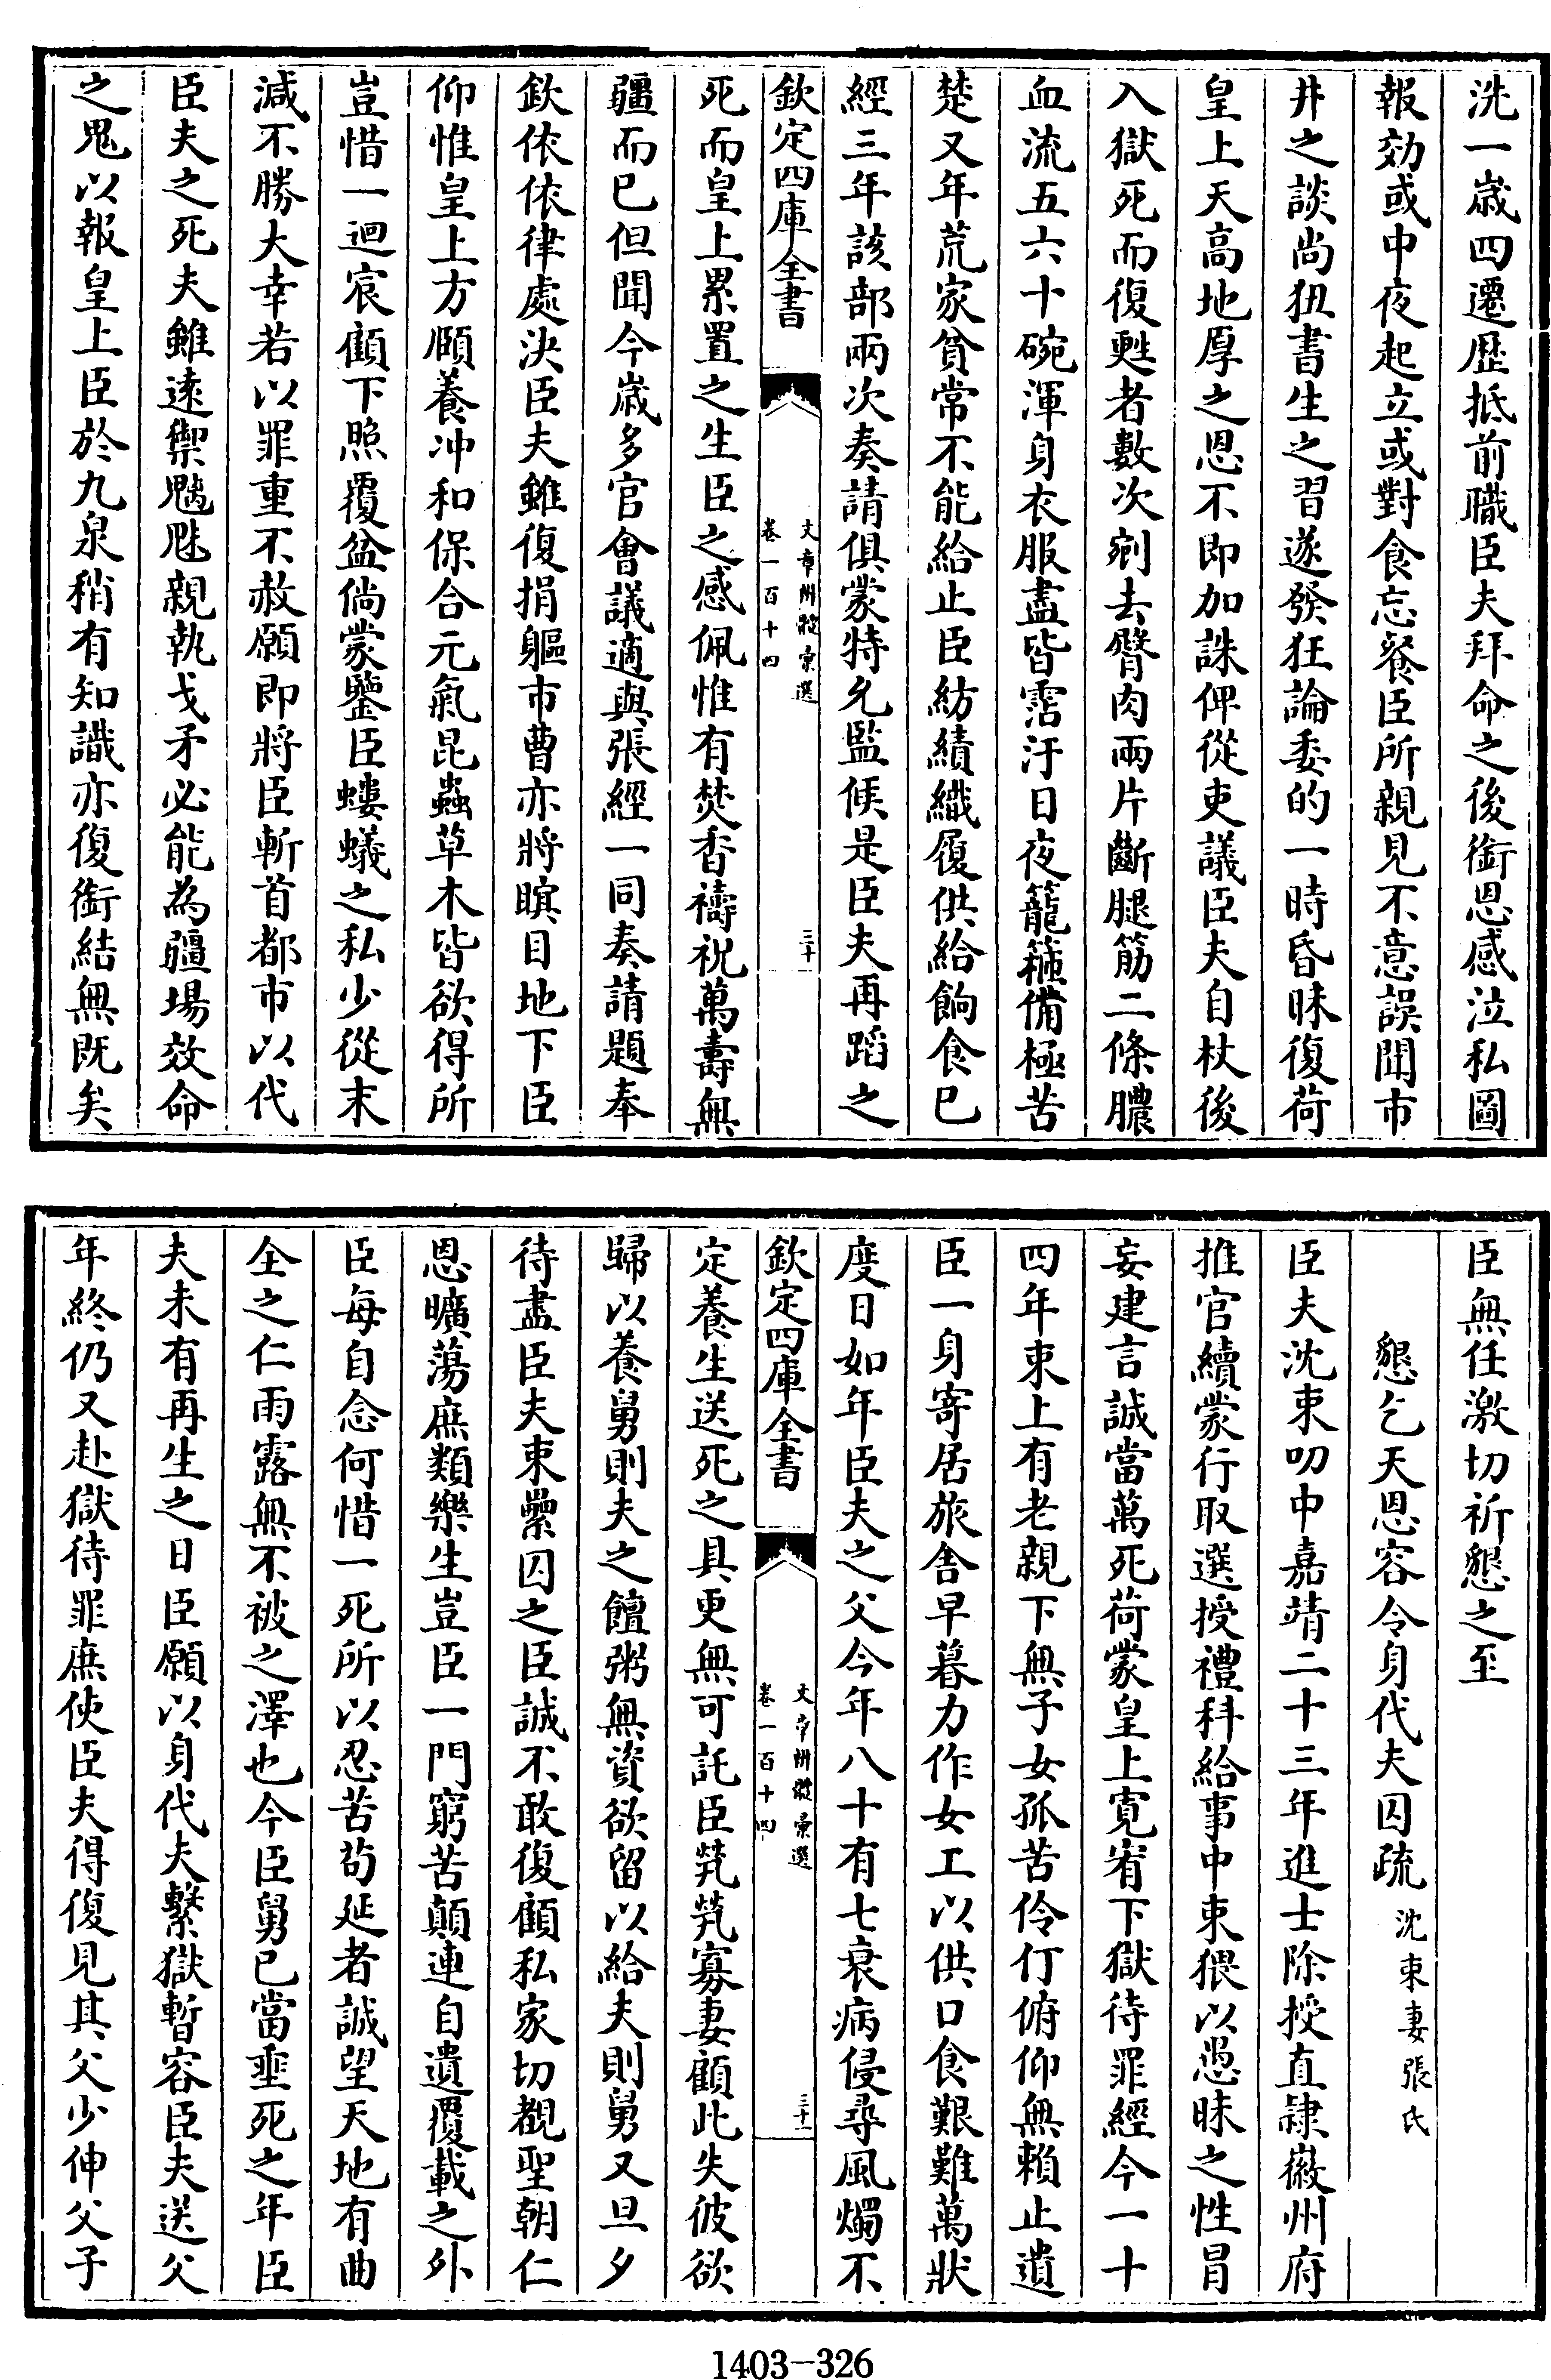 洗一歲四遷歷抵前職臣夫拜命之後銜恩感泣私圖
報効或中夜起立或對食忘餐臣所親見不意誤聞市
井之談尚狃書生之習遂發狂論委的一時昏昧復荷
皇上天高地厚之恩不即加誅俾從吏議臣夫自杖後
入獄死而復甦者數次剜去臀肉兩片斷腿筋二條膿
血流五六十碗渾身衣服盡皆霑汙日夜籠箍備極苦
楚又年荒家貧常不能給止臣紡績織履供給餉食已
經三年該部兩次奏請俱蒙特允監候是臣夫再蹈之
欽定四庫全書
文章辨體彙選
卷一百十四
三十
死而皇上累置之生臣之感佩惟有焚香禱祝萬壽無
疆而已但聞今歲多官會議適與張經一同奏請題奉
欽依依律處決臣夫雖復捐軀市曹亦將瞑目地下臣
仰惟皇上方頤養冲和保合元氣昆蟲草木皆欲得所
豈惜一迴宸顧下照覆盆倘蒙鑒臣螻蟻之私少從末
減不勝大幸若以罪重不赦願即將臣斬首都市以代
臣夫之死夫雖遠禦魑魅親執戈矛必能為疆場效命
之鬼以報皇上臣於九泉稍有知識亦復銜結無既矣
臣無任激切祈懇之至
懇乞天恩容令身代夫囚疏 沈束妻張氏
臣夫沈束叨中嘉靖二十三年進士除授直隷徽州府
推官續蒙行取選授禮科給事中束猥以愚昧之性冒
妄建言誠當萬死荷蒙皇上寛宥下獄待罪經今一十
四年束上有老親下無子女孤苦伶仃俯仰無賴止遺
臣一身寄居旅舍早暮力作女工以供口食艱難萬狀
度日如年臣夫之父今年八十有七衰病侵尋風燭不
欽定四庫全書
文章辨體彙選
卷一百十四
三十一
定養生送死之具更無可託臣煢煢寡妻顧此失彼欲
歸以養舅則夫之饘粥無資欲留以給夫則舅又旦夕
待盡臣夫束纍囚之臣誠不敢復顧私家切覩聖朝仁
恩曠蕩庶類樂生豈臣一門窮苦顛連自遺覆載之外
臣每自念何惜一死所以忍苦苟延者誠望天地有曲
全之仁雨露無不被之澤也今臣舅已當垂死之年臣
夫未有再生之日臣願以身代夫繫獄暫容臣夫送父
年終仍又赴獄待罪庶使臣夫得復見其父少伸父子
1403-326